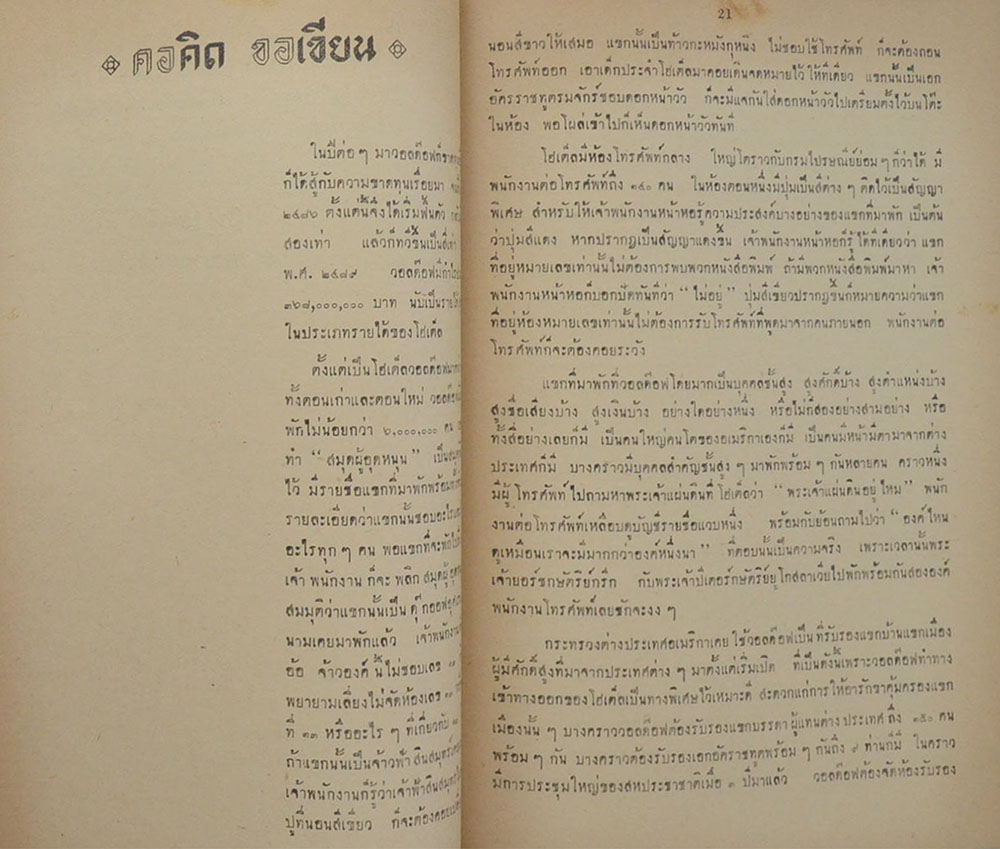 คอคิด ขอเขียน
ในปีต่อๆ มาวอลด๊อฟก็ขาด
ก็ได้สู้กับความขาดทุนเรื่อยมา
๒๔๘๖ ตั้งแต่นั้นจึงได้เริ่มฟื้นตัว
สองเท่า แล้วก็ทวีขึ้นเป็นสี่เท่า
พ.ศ. ๒๔๘๙ วอลด๊อฟมีกำไร
๓๖๘,๐๐๐,๐๐๐ บาท นับเป็นรายได้
ในประเภทรายได้ของโฮเต็ล
ตั้งแต่เป็นโฮเต็ลวอลด๊อฟมา
ทั้งตอนเก่าและตอนใหม่ วอลด๊อฟ
พักไม่น้อยกว่า ๖,๐๐๐,๐๐๐ คน
ทำ “สมุดผู้อุดหนุน” เป็นสมุด
ไว้ มีรายชื่อแขกที่มาพักพร้อมทั้ง
รายละเอียดว่าแขกนั้นชอบอะไร
อะไรทุกๆ คน พอแขกที่จะพักไป
เจ้าพนักงาน ก็จะ พลิก สมุดผู้อุด
สมมุติว่าแขกนั้นเป็น ดุ๊กออฟ
นามเคยมาพักแล้ว เจ้าพนักงาน
อ้อ จ้าวองค์ นี้ไม่ชอบเลข
พยายามเลี่ยงไม่จัดห้องเลข
ที่ ๑๓ หรืออะไร ๆ ที่เกี่ยวกับ
ถ้าแขกนั้นเป็นเจ้าฟ้า สินสมุทร์
เจ้าพนักงานก็รู้ว่าเจ้าฟ้าสินสมุทร
ปูที่นอนสีเขียว ก็จะต้องคอย
21
นอนสีขาวให้เสมอ แขกนั้นเป็นท้าวกะหมังกุหนิง ไม่ชอบใช้โทรศัพท์ ก็จะต้องถอน
โทรศัพท์ออก เอาเด็กประจำโฮเต็ลมาคอยเดินจดหมายไว้ให้ทีเดียว แขกนั้นเป็นเอก
อัครราชทูตรมจักร์ชอบดอกหน้าวัว ก็จะมีแจกันใส่ดอกหน้าวัวไปเตรียมตั้งไว้บนโต๊ะ
ในห้อง พอโผล่เข้าไปก็เห็นดอกหน้าวัวทันที
โฮเต็ลมีห้องโทรศัพท์กลาง ใหญ่โตราวกับกรมไปรษณีย์ย่อม ๆ ก็ว่าได้ มี
พนักงานต่อโทรศัพท์ถึง ๑๔๐ คน ในห้องตอนหนึ่งมีปุ่มเป็นสีต่าง ๆ ติดไว้เป็นสัญญา
พิเศษ สำหรับให้เจ้าพนักงานหน้าหอรู้ความประสงค์บางอย่างของแขกที่มาพัก เป็นต้น
ว่าปุ่มสีแดง หากปรากฏเป็นสัญญาแดงขึ้น เจ้าพนักงานหน้าหอก็รู้ได้ทีเดียวว่า แขก
ที่อยู่หมายเลขเท่านั้นไม่ต้องการพบพวกหนังสือพิมพ์ ถ้ามีพวกหนังสือพิมพ์มาหา เจ้า
พนักงานหน้าหอก็บอกปัดทันทีว่า “ไม่อยู่” ปุ่มสีเขียวปรากฏขึ้นก็หมายความว่าแขก
ที่อยู่ห้องหมายเลขเท่านั้นไม่ต้องการรับโทรศัพท์ที่พูดมาจากคนภายนอก พนักงานต่อ
โทรศัพท์ก็จะต้องคอยระวัง
แขกที่มาพักที่วอลด๊อฟโดยมากเป็นบุคคลชั้นสูง สูงศักดิ์บ้าง สูงตำแหน่งบ้าง
สูงชื่อเสียงบ้าง สูงเงินบ้าง อย่างใดอย่างหนึ่ง หรือไม่ก็สองอย่างสามอย่าง หรือ
ทั้งสี่อย่างเลยก็มี เป็นคนใหญ่คนโตของอเมริกาเองก็มี เป็นคนมีหน้ามีตามาจากต่าง
ประเทศก็มี บางคราวมีบุคคลสำคัญชั้นสูง ๆ มาพักพร้อม ๆ กันหลายคน คราวหนึ่ง
มีผู้ โทรศัพท์ ไปถามหาพระเจ้าแผ่นดินที่ โฮเต็ลว่า “พระเจ้าแผ่นดินอยู่ไหม” พนัก
งานต่อโทรศัพท์เหลือบดูบัญชีรายชื่อแวบหนึ่ง พร้อมกับย้อนถามไปว่า “องค์ไหน
ดูเหมือนเราจะมีมากกว่าองค์หนึ่งนา” ที่ตอบนั้นเป็นความจริง เพราะเวลานั้นพระ
เจ้ายอร์ชกษัตริย์กรีก กับพระเจ้าปีเตอร์กษัตริย์ยูโกสลาเวียไปพักพร้อมกันสององค์
พนักงานโทรศัพท์เลยชักจะงง ๆ
กระทรวงต่างประเทศอเมริกาเคยใช้วอลด๊อฟเป็นที่รับรองแขกบ้านแขกเมือง
ผู้มีศักดิ์สูงที่มาจากประเทศต่าง ๆ มาตั้งแต่เริ่มเปิด ที่เป็นดังนั้นเพราะวอลด๊อฟทำทาง
เข้าทางออกของโฮเต็ลเป็นทางพิเศษไว้เหมาะดี สะดวกแก่การให้อารักขาคุ้มครองแขก
เมืองนั้น ๆ บางคราววอลด๊อฟต้องรับรองแขกบรรดา ผู้แทนต่าง ประเทศ ถึง ๑๕๐ คน
พร้อม ๆ กัน บางคราวต้องรับรองเอกอัครราชทูตพร้อม ๆ กันถึง ๙ ท่านก็มี ในคราว
มีการประชุมใหญ่ของสหประชาชาติเมื่อ ๓ ปีมาแล้ว วอลด๊อฟต้องจัดห้องรับรอง